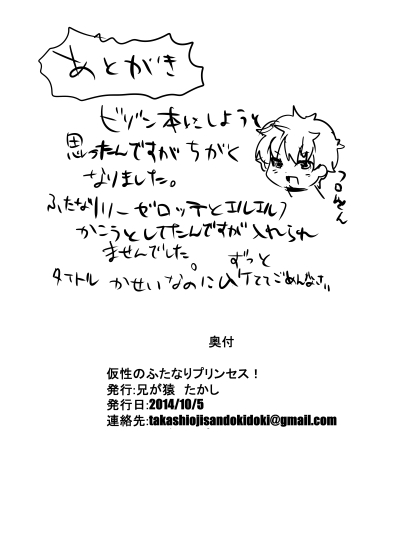 あとがき
ビゾン本にしようと
思ったんですがちがく
なりました。
ふたなりリーゼロッテとエルエルフ
かこうとしてたんですが入れられ
ませんでした。
ずっと
タイトル かせいなのに ててごめんなさい
奥付
仮性のふたなりプリンセス！
発行:兄が猿 たかし
発行日:2014/10/5
連絡先:takashiojisandokidoki@gmail.com